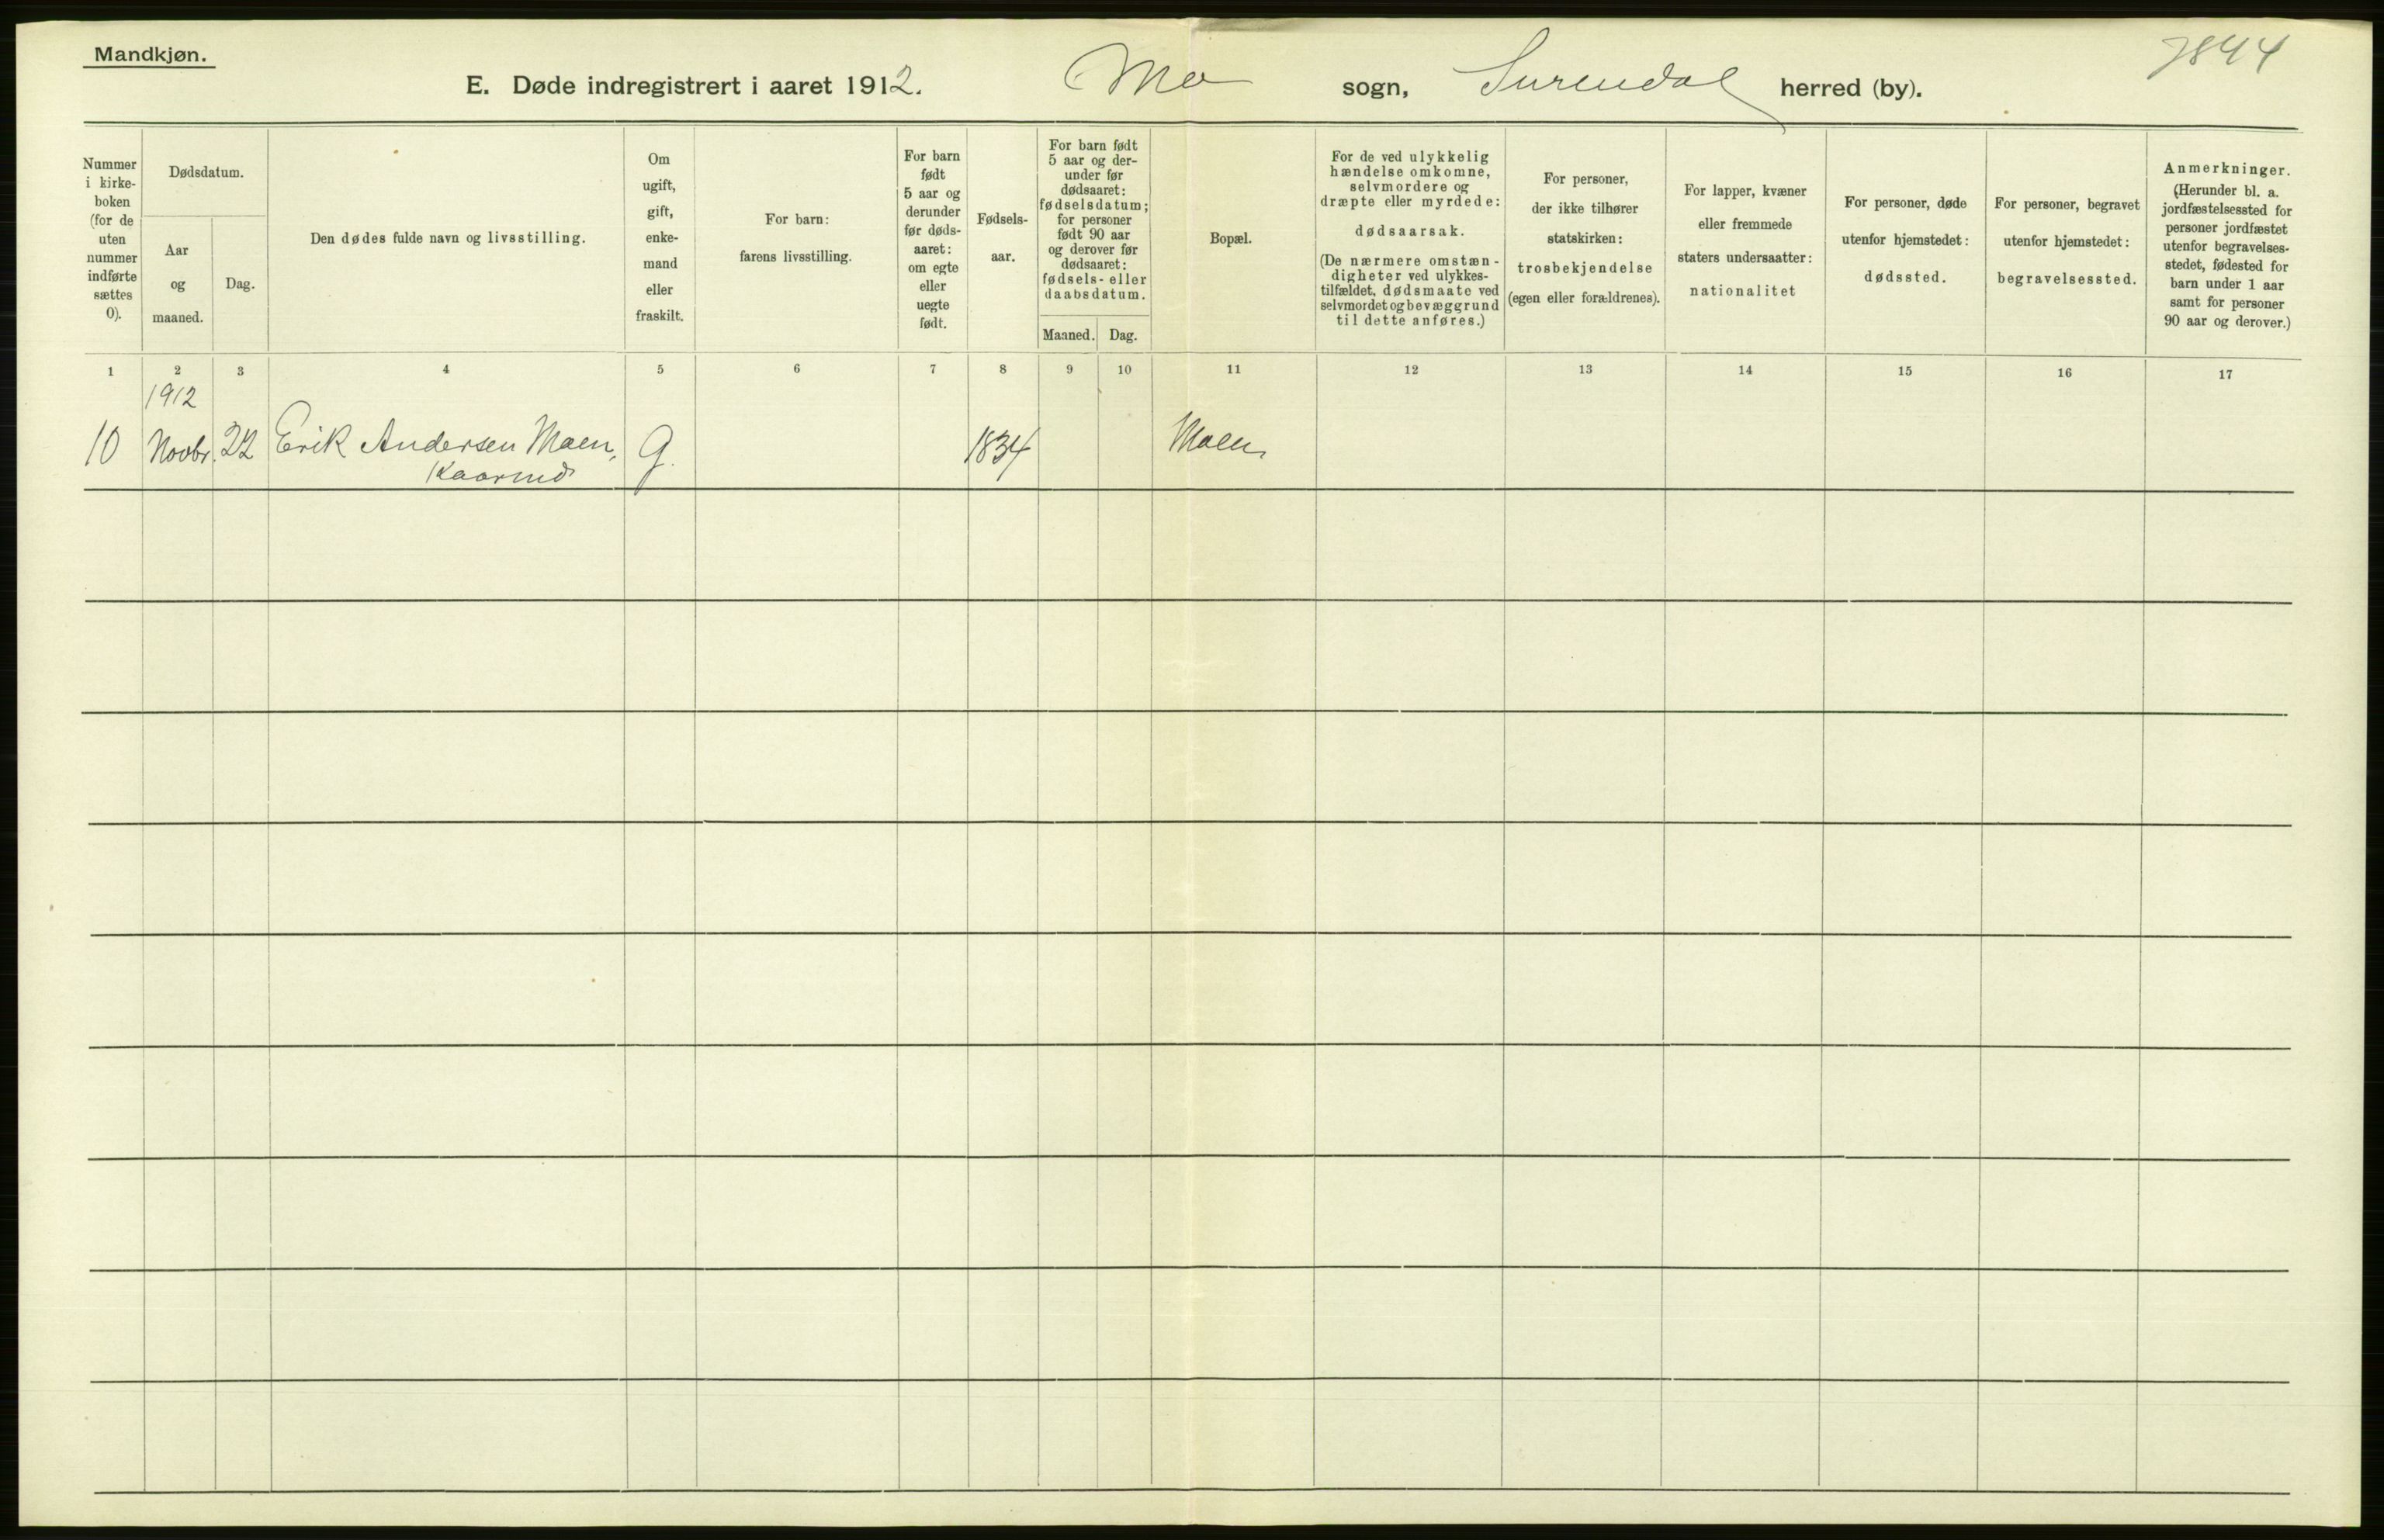 Mandkjøn.
7844
E. Døde indregistrert i aaret 1912. Mo sogn, Surendal herred (by).
Nummer
i kirke-
boken
(for de
uten
nummer
indførte
sættes
0).
Dødsdatum.
Aar
og
maaned.
Dag.
Den dødes fulde navn og livsstilling.
Om
ugift,
gift,
enke-
mand
eller
fraskilt.
For barn:
farens livsstilling.
For barn
født
5 aar og
derunder
før døds-
aaret:
om egte
eller
uegte
født.
Fødsels-
aar.
For barn født
5 aar og der-
under før
dødsaaret:
fødselsdatum;
for personer
født 90 aar
og derover før
dødsaaret:
fødsels- eller
daabsdatum.
Maaned.
Dag.
Bopæl.
For de ved ulykkelig
hændelse omkomne,
selvmordere og
dræpte eller myrdede:
dødsaarsak.
(De nærmere omstæn-
digheter ved ulykkes-
tilfældet, dødsmaate ved
selvmordet og bevæggrund
til dette anføres.)
For personer,
der ikke tilhører
statskirken:
trosbekjendelse
(egen eller forældrenes).
For lapper, kvæner
eller fremmede
staters undersaatter:
nationalitet
For personer, døde
utenfor hjemstedet:
dødssted.
For personer, begravet
utenfor hjemstedet:
begravelsessted.
Anmerkninger.
(Herunder bl. a.
jordfæstelsessted for
personer jordfæstet
utenfor begravelses-
stedet, fødested for
barn under 1 aar
samt for personer
90 aar og derover.)
1 2 3 4 5 6 7 8 9 10 11 12 13 14 15 16 17
1912
10 Novbr. 22 Erik Andersen Moen, G. 1834 Moen
Kaarmd